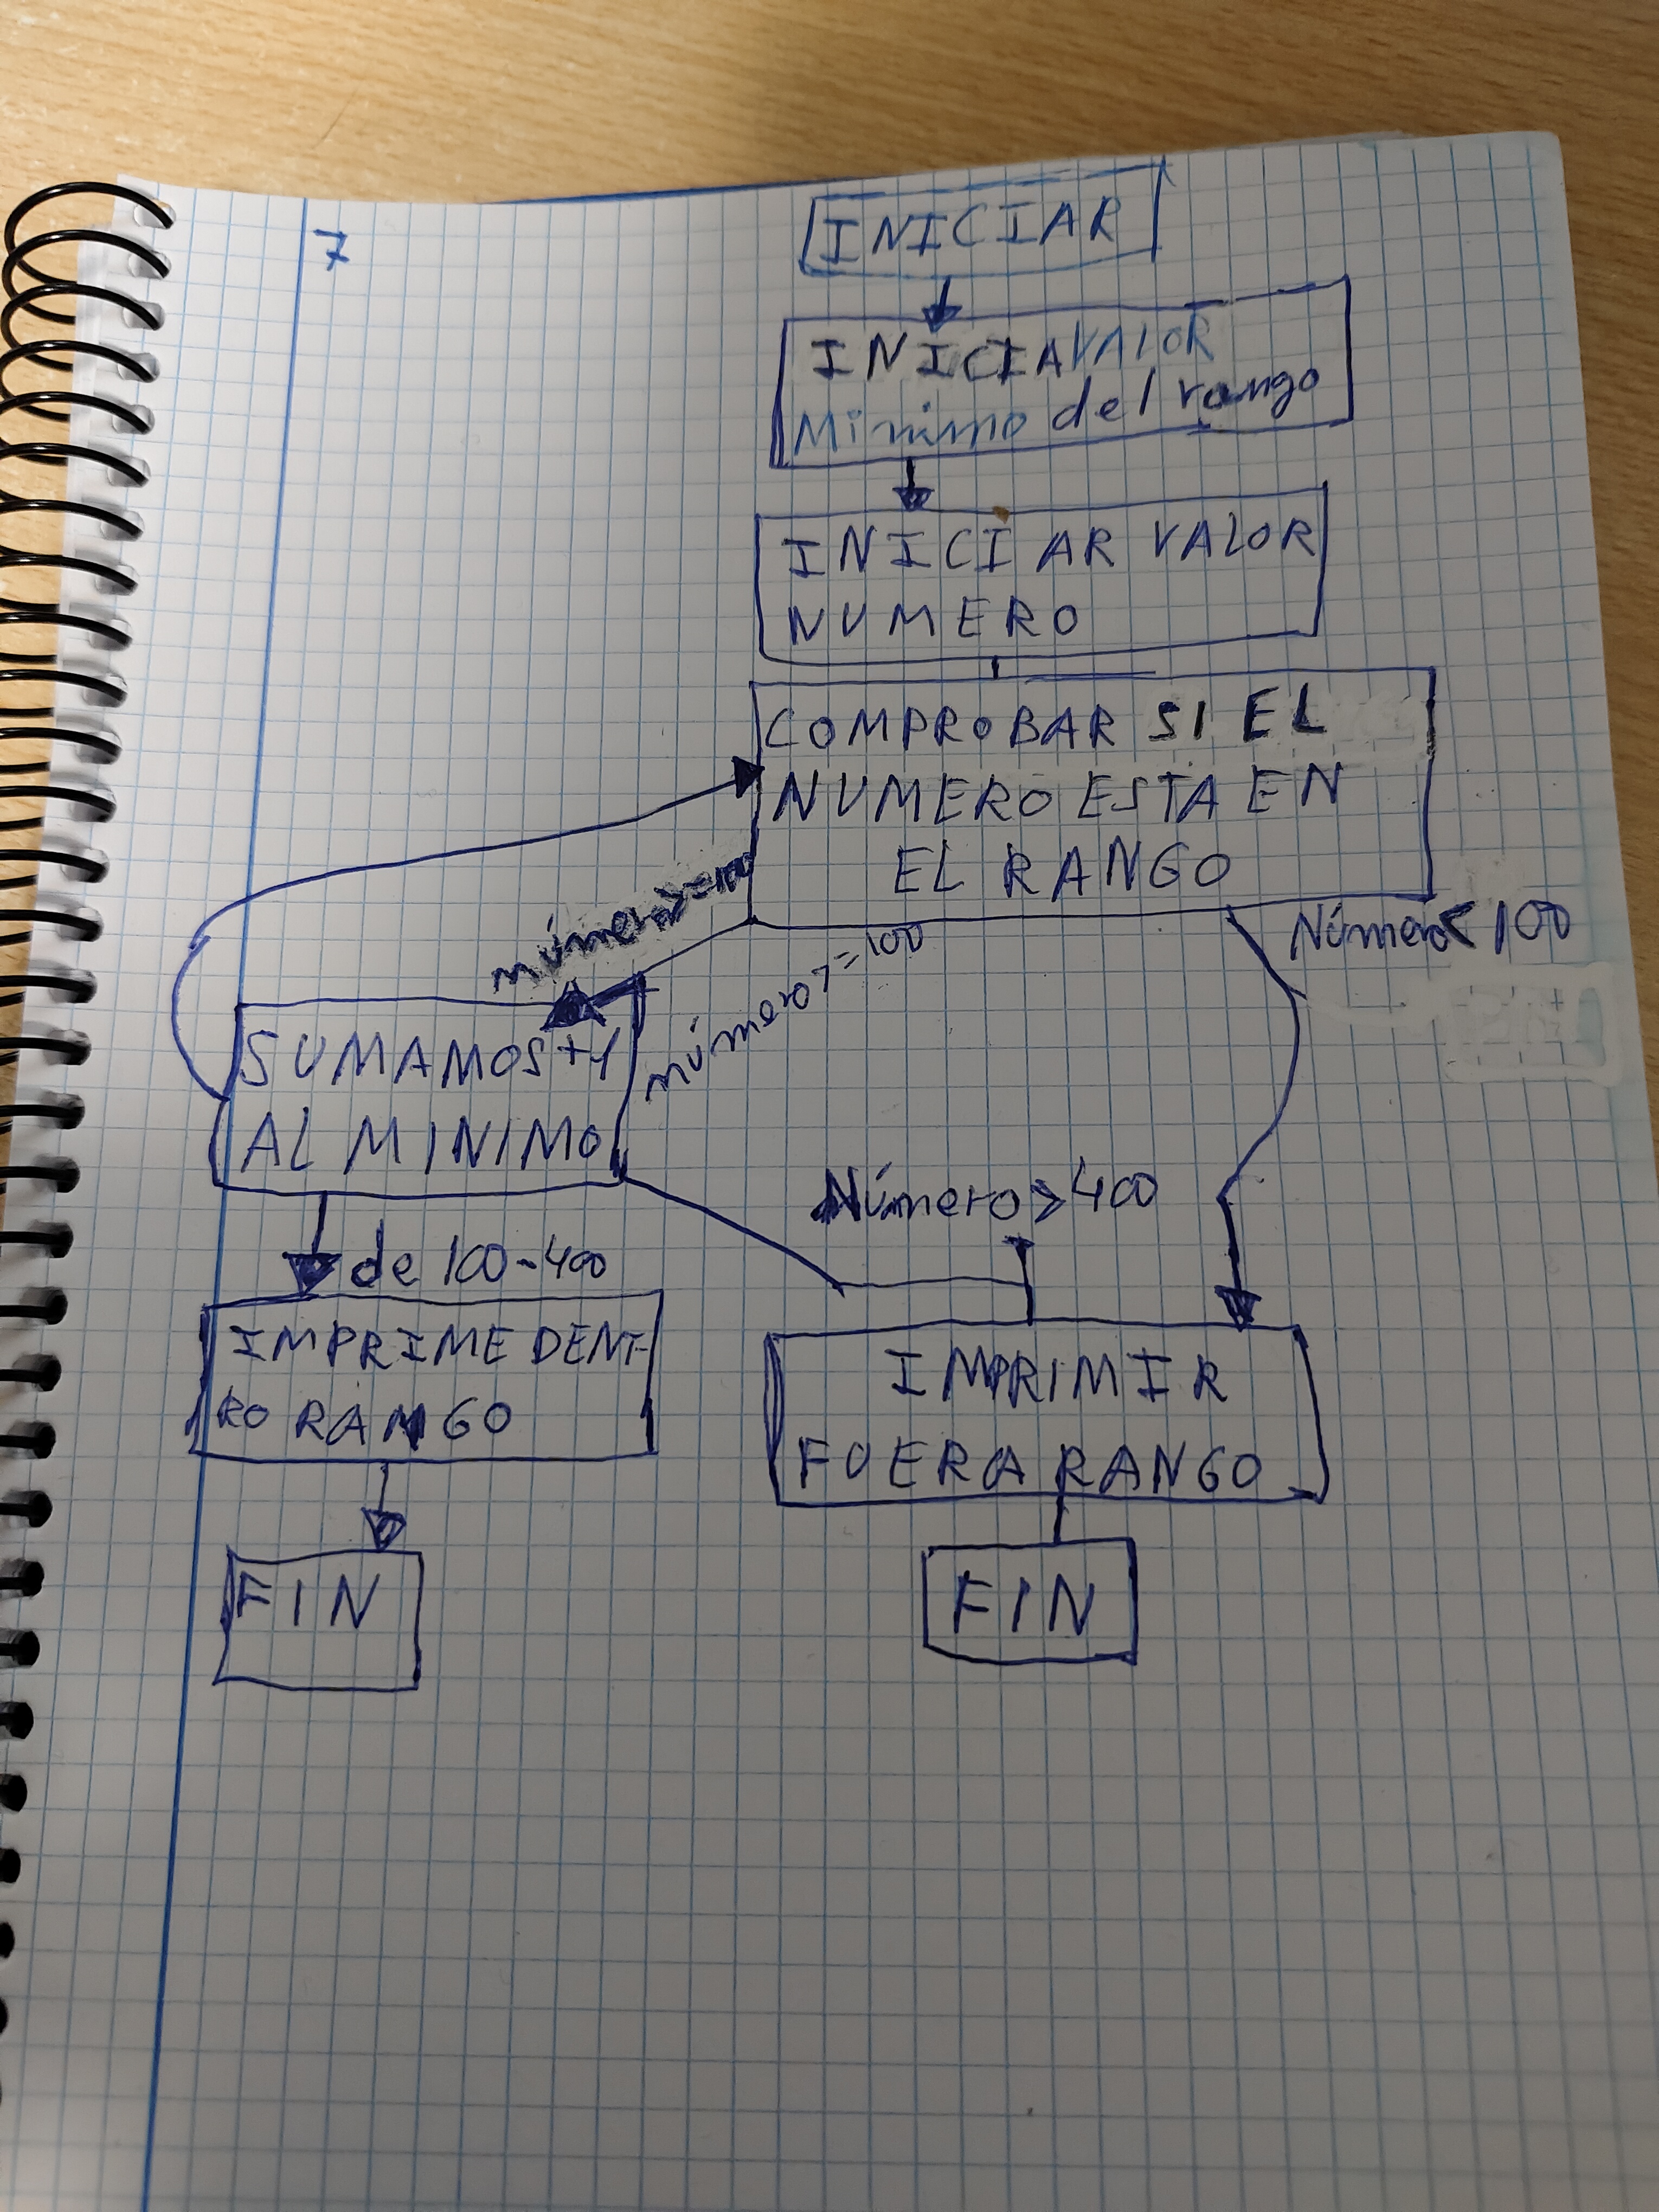 7
INICIAR
INICIA VALOR
Minimo del rango
INICIAR VALOR
NUMERO
COMPROBAR SI EL
NUMERO ESTA EN
EL RANGO
número>=100
número>=100
Número< 100
SUMAMOS+1
AL MINIMO
Número > 400
de 100-400
IMPRIME DENT-
RO RANGO
IMPRIMIR
FUERA RANGO
FIN
FIN